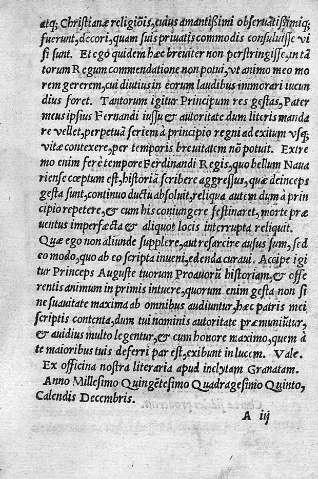 atq; Christianæ religiõis, cuius amantißimi obseruatißimiq;
fuerunt, decori, quam suis priuatis commodis consuluisse vi
si sunt. Et ego quidem hæc breuiter non perstringisse, in tã
torum Regum commendatione non potui, vt animo meo mo
rem gererem, cui diutius in eorum laudibus immorari iucun
dius foret. Tantorum igitur Principum res gestas, Pater
meus ipsius Fernandi iussu & autoritate dum literis manda
re vellet, perpetuã seriem à principio regni ad exitum vsq;
vitæ contexere, per temporis breuitatem nõ potuit. Extre
mo enim ferè tempore Ferdinandi Regis, quo bellum Naua
riense cœptum est, historiã scribere aggressus, quæ deinceps
gesta sunt, continuo ductu absoluit, reliqua autem dum à prin
cipio repetere, & cum his coniungere festinaret, morte præ
uentus imperfecta & aliquot locis interrupta reliquit.
Quæ ego non aliunde supplere, aut resarcire ausus sum, sed
eo modo, quo ab eo scripta inueni, edenda curaui. Accipe igi
tur Princeps Auguste tuorum Proauorũ historiam, & offe
rentis animum in primis intuere, quorum enim gesta non si
ne suauitate maxima ab omnibus audiuntur, hæc patris mei
scriptis contenta, dum tui nominis autoritate præmuniũtur,
& auidius multo legentur, & cum honore maximo, quem à
te maioribus tuis deferri par est, exibunt in lucem. Vale.
Ex officina nostra literaria apud inclytam Granatam.
Anno Millesimo Quingẽtesimo Quadragesimo Quinto,
Calendis Decembris.
A iij